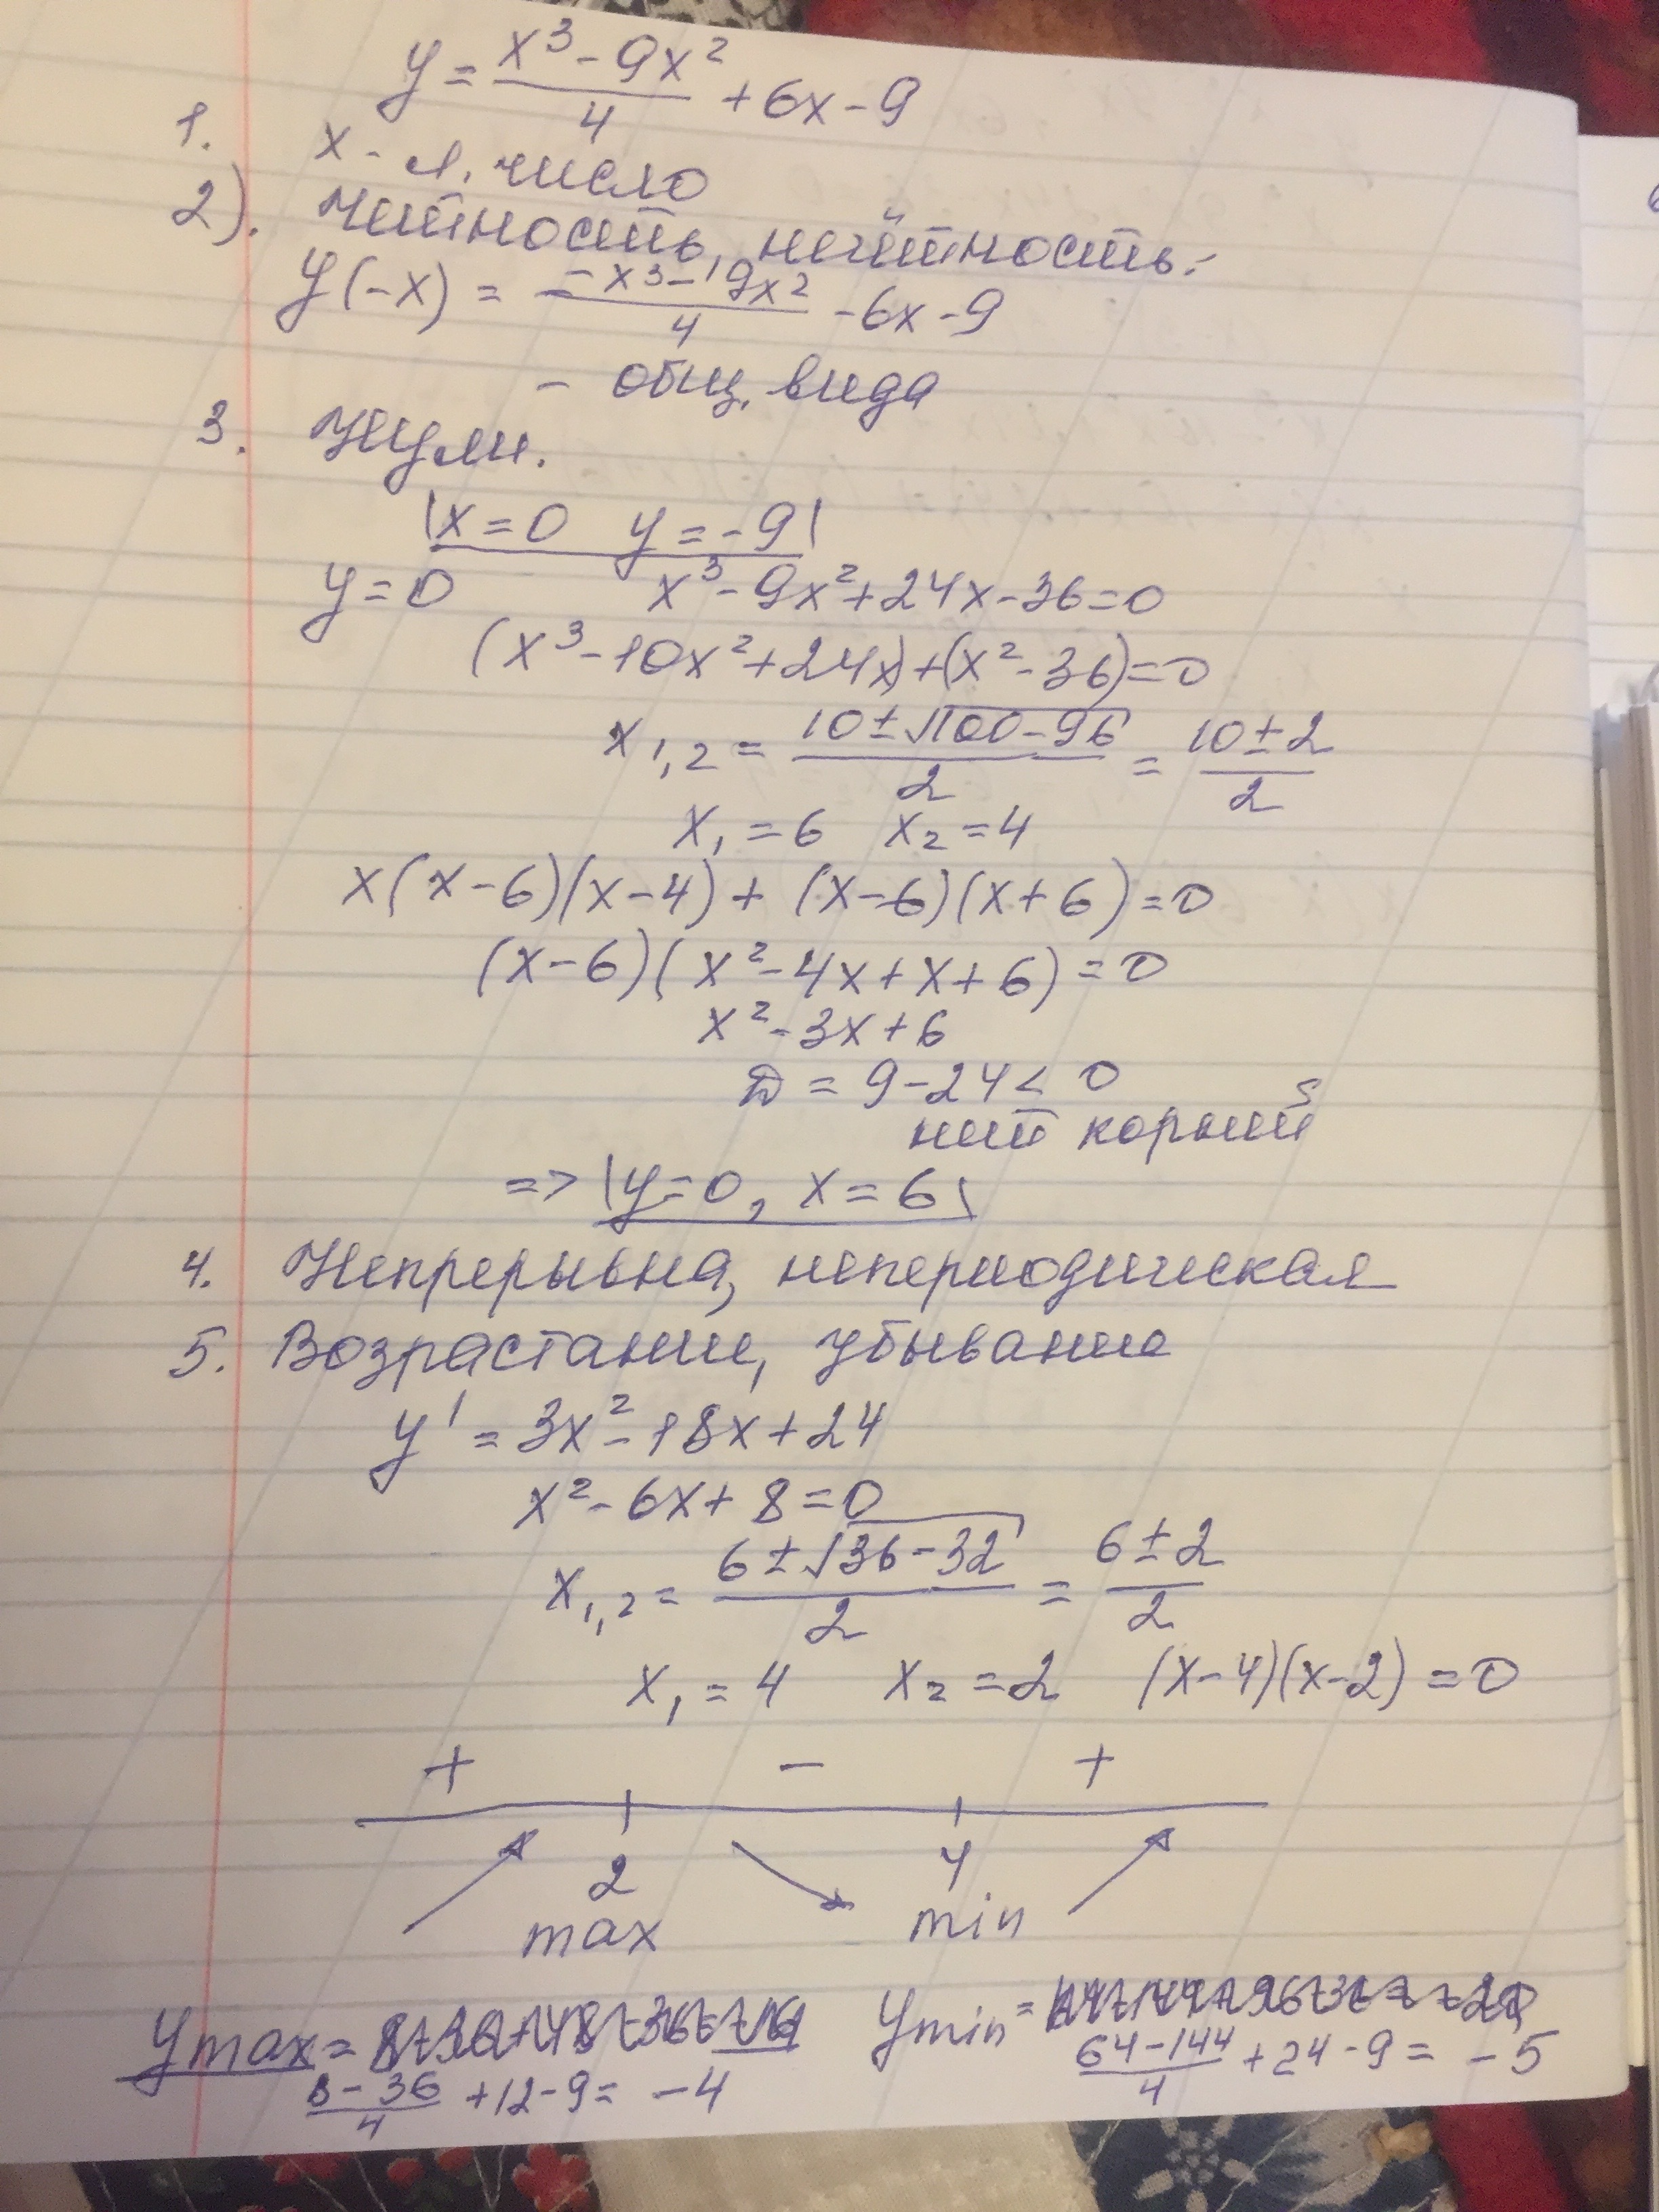 y = (x³ - 9x²)/4 + 6x - 9
1. x - л. число
2). Чётность, нечётность:
y(-x) = (-x³ - 9x²)/4 - 6x - 9
- общ. вида
3. Нули.
|x = 0 y = -9|
y = 0 x³ - 9x² + 24x - 36 = 0
(x³ - 10x² + 24x) + (x² - 36) = 0
x₁,₂ = (10 ± √100 - 96)/2 = (10 ± 2)/2
x₁ = 6 x₂ = 4
x(x - 6)(x - 4) + (x - 6)(x + 6) = 0
(x - 6)(x² - 4x + x + 6) = 0
x² - 3x + 6
D = 9 - 24 < 0
нет корней
=> |y = 0, x = 6|
4. Непрерывна, непериодическая
5. Возрастание, убывание
y' = 3x² - 18x + 24
x² - 6x + 8 = 0
x₁,₂ = (6 ± √36 - 32)/2 = (6 ± 2)/2
x₁ = 4 x₂ = 2 (x - 4)(x - 2) = 0
+ - +
2 4
max min
ymax = ymin =
(8 - 36)/4 + 12 - 9 = -4 (64 - 144)/4 + 24 - 9 = -5